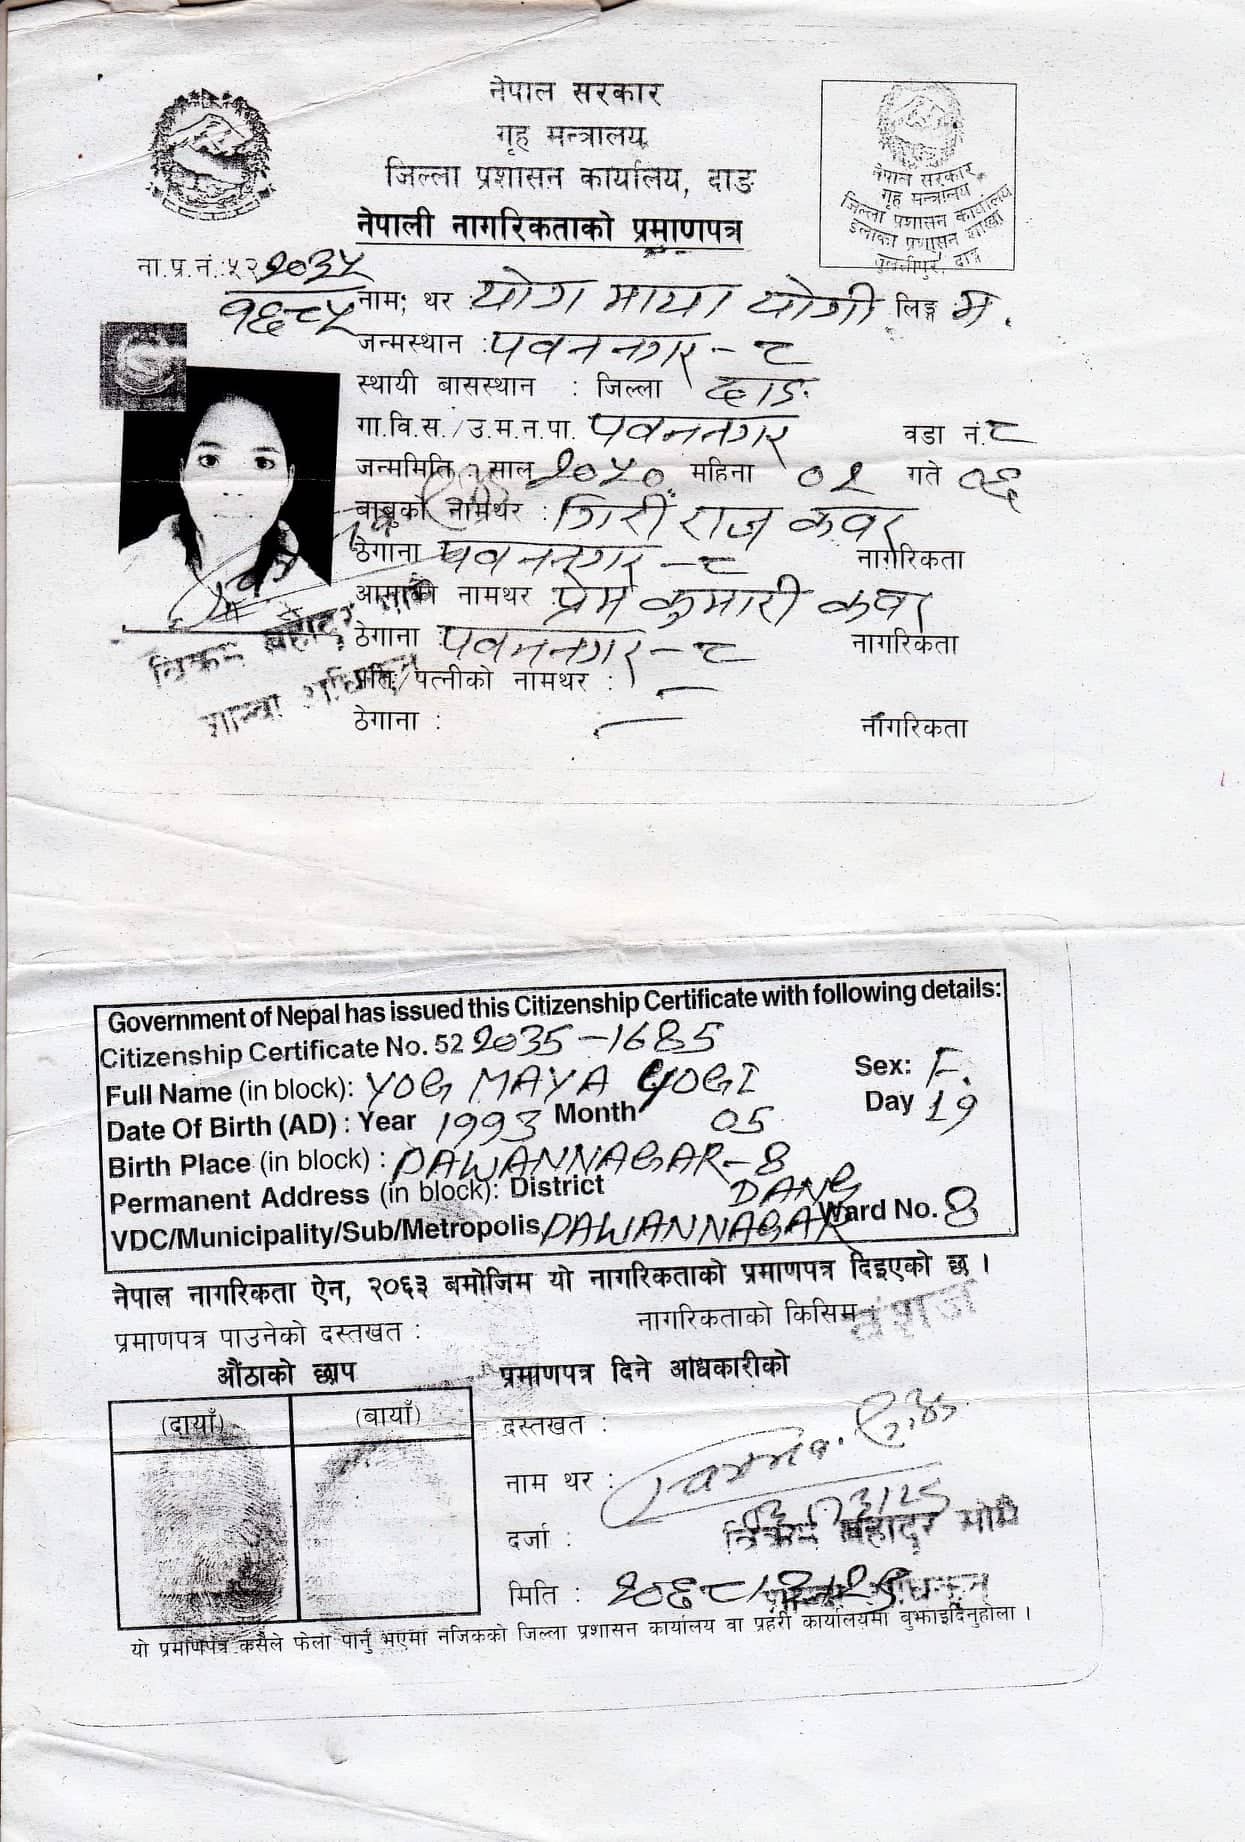 नेपाल सरकार
गृह मन्त्रालय
जिल्ला प्रशासन कार्यालय, दाङ
नेपाली नागरिकताको प्रमाणपत्र
नेपाल सरकार
गृह मन्त्रालय
जिल्ला प्रशासन कार्यालय
इलाका प्रशासन शाखा
तुलसीपुर, दाङ
ना.प्र.नं.:५२ २०३५
१६८५
नाम; थर योग माया योगी लिङ्ग म.
जन्मस्थान : पवननगर - ८
स्थायी बासस्थान : जिल्ला दाङ
गा.वि.स./उ.म.न.पा. पवननगर वडा नं. ८
जन्ममिति : साल २०५० महिना ०२ गते ०६
बाबुको नामथर : गिरी राज कवर
ठेगाना पवननगर - ८ नागरिकता
आमाको नामथर प्रेम कुमारी कवर
ठेगाना : पवननगर - ८ नागरिकता
पति/पत्नीको नामथर : —
ठेगाना : — नागरिकता
Government of Nepal has issued this Citizenship Certificate with following details:
Citizenship Certificate No. 52 2035-1685
Full Name (in block): YOG MAYA YOGI Sex: F.
Date Of Birth (AD) : Year 1993 Month 05 Day 19
Birth Place (in block) : PAWANNAGAR-8
Permanent Address (in block): District DANG
VDC/Municipality/Sub/Metropolis PAWANNAGAR Ward No. 8
नेपाल नागरिकता ऐन, २०६३ बमोजिम यो नागरिकताको प्रमाणपत्र दिइएको छ ।
नागरिकताको किसिम : वंशज
प्रमाणपत्र पाउनेको दस्तखत :
औंठाको छाप
(दायाँ) (बायाँ)
प्रमाणपत्र दिने अधिकारीको
दस्तखत :
नाम थर :
दर्जा :
मिति : २०६८।२।२
यो प्रमाणपत्र कसैले फेला पार्नु भएमा नजिकको जिल्ला प्रशासन कार्यालय वा प्रहरी कार्यालयमा बुझाइदिनुहोला ।